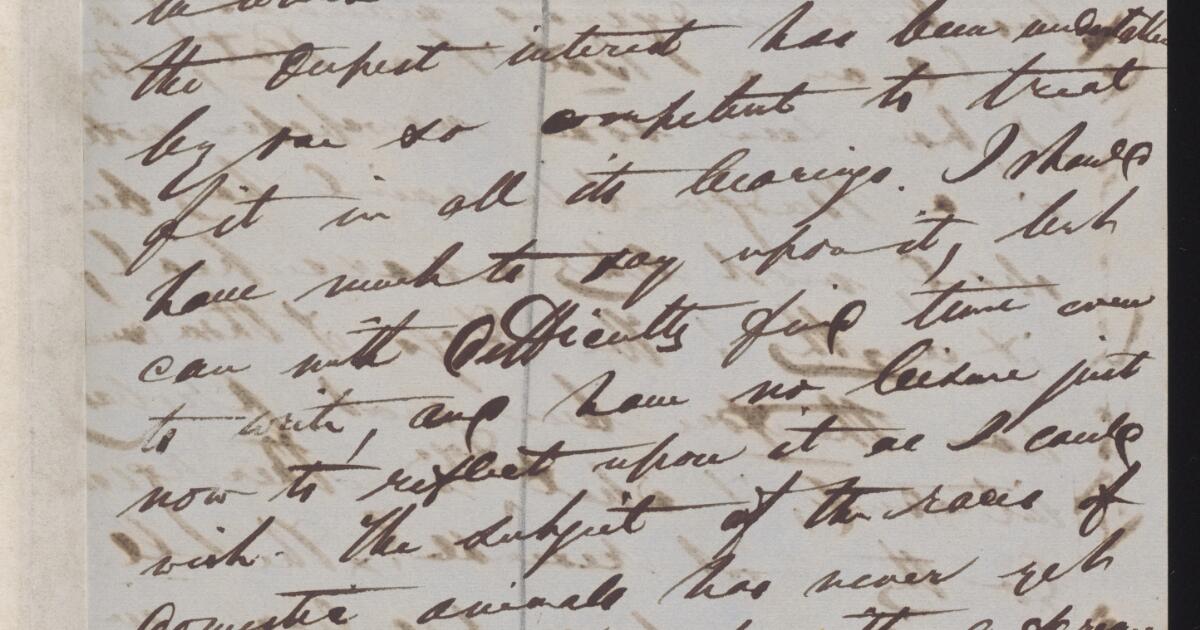 the deepest interest has been undertaken
by one so competent to treat
of it in all its bearings. I should
have much to say upon it, but
can with difficulty find time even
to write, and have no leisure just
now to reflect upon it as I could
wish. The subject of the races of
domestic animals has never yet